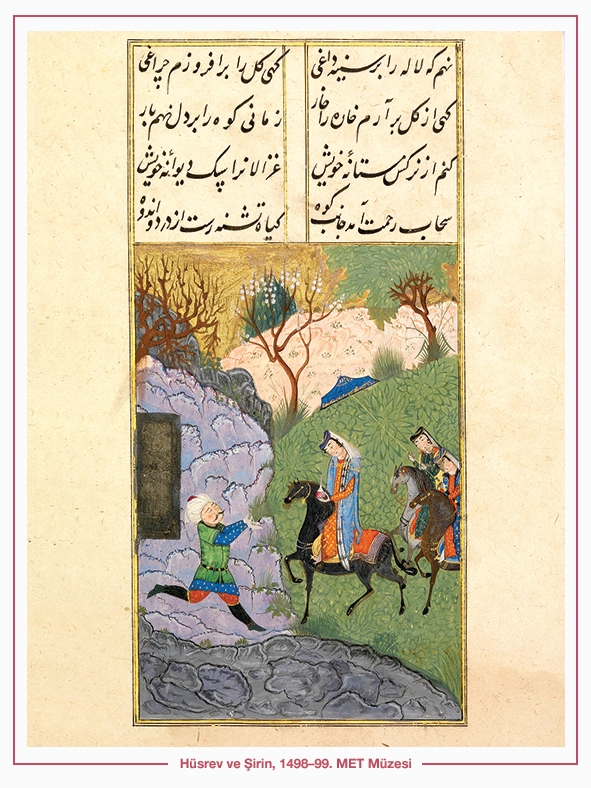 نهم که لاله را بر سینه داغی کهی کل را بر افروزم چراغی
کهی از کل بر آرم خاره را خار زمانی کوه را بر دل نهم بار
کنم از نرکس مستانهٔ خویش غزالانرا دیوانهٔ خویش
سحاب رحمت آمد جانب کوه کیاه تشنه رست از درد و اندوه
Hüsrev ve Şirin, 1498–99. MET Müzesi